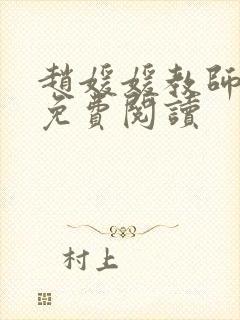 趙媛媛教師
免費閱讀
村上